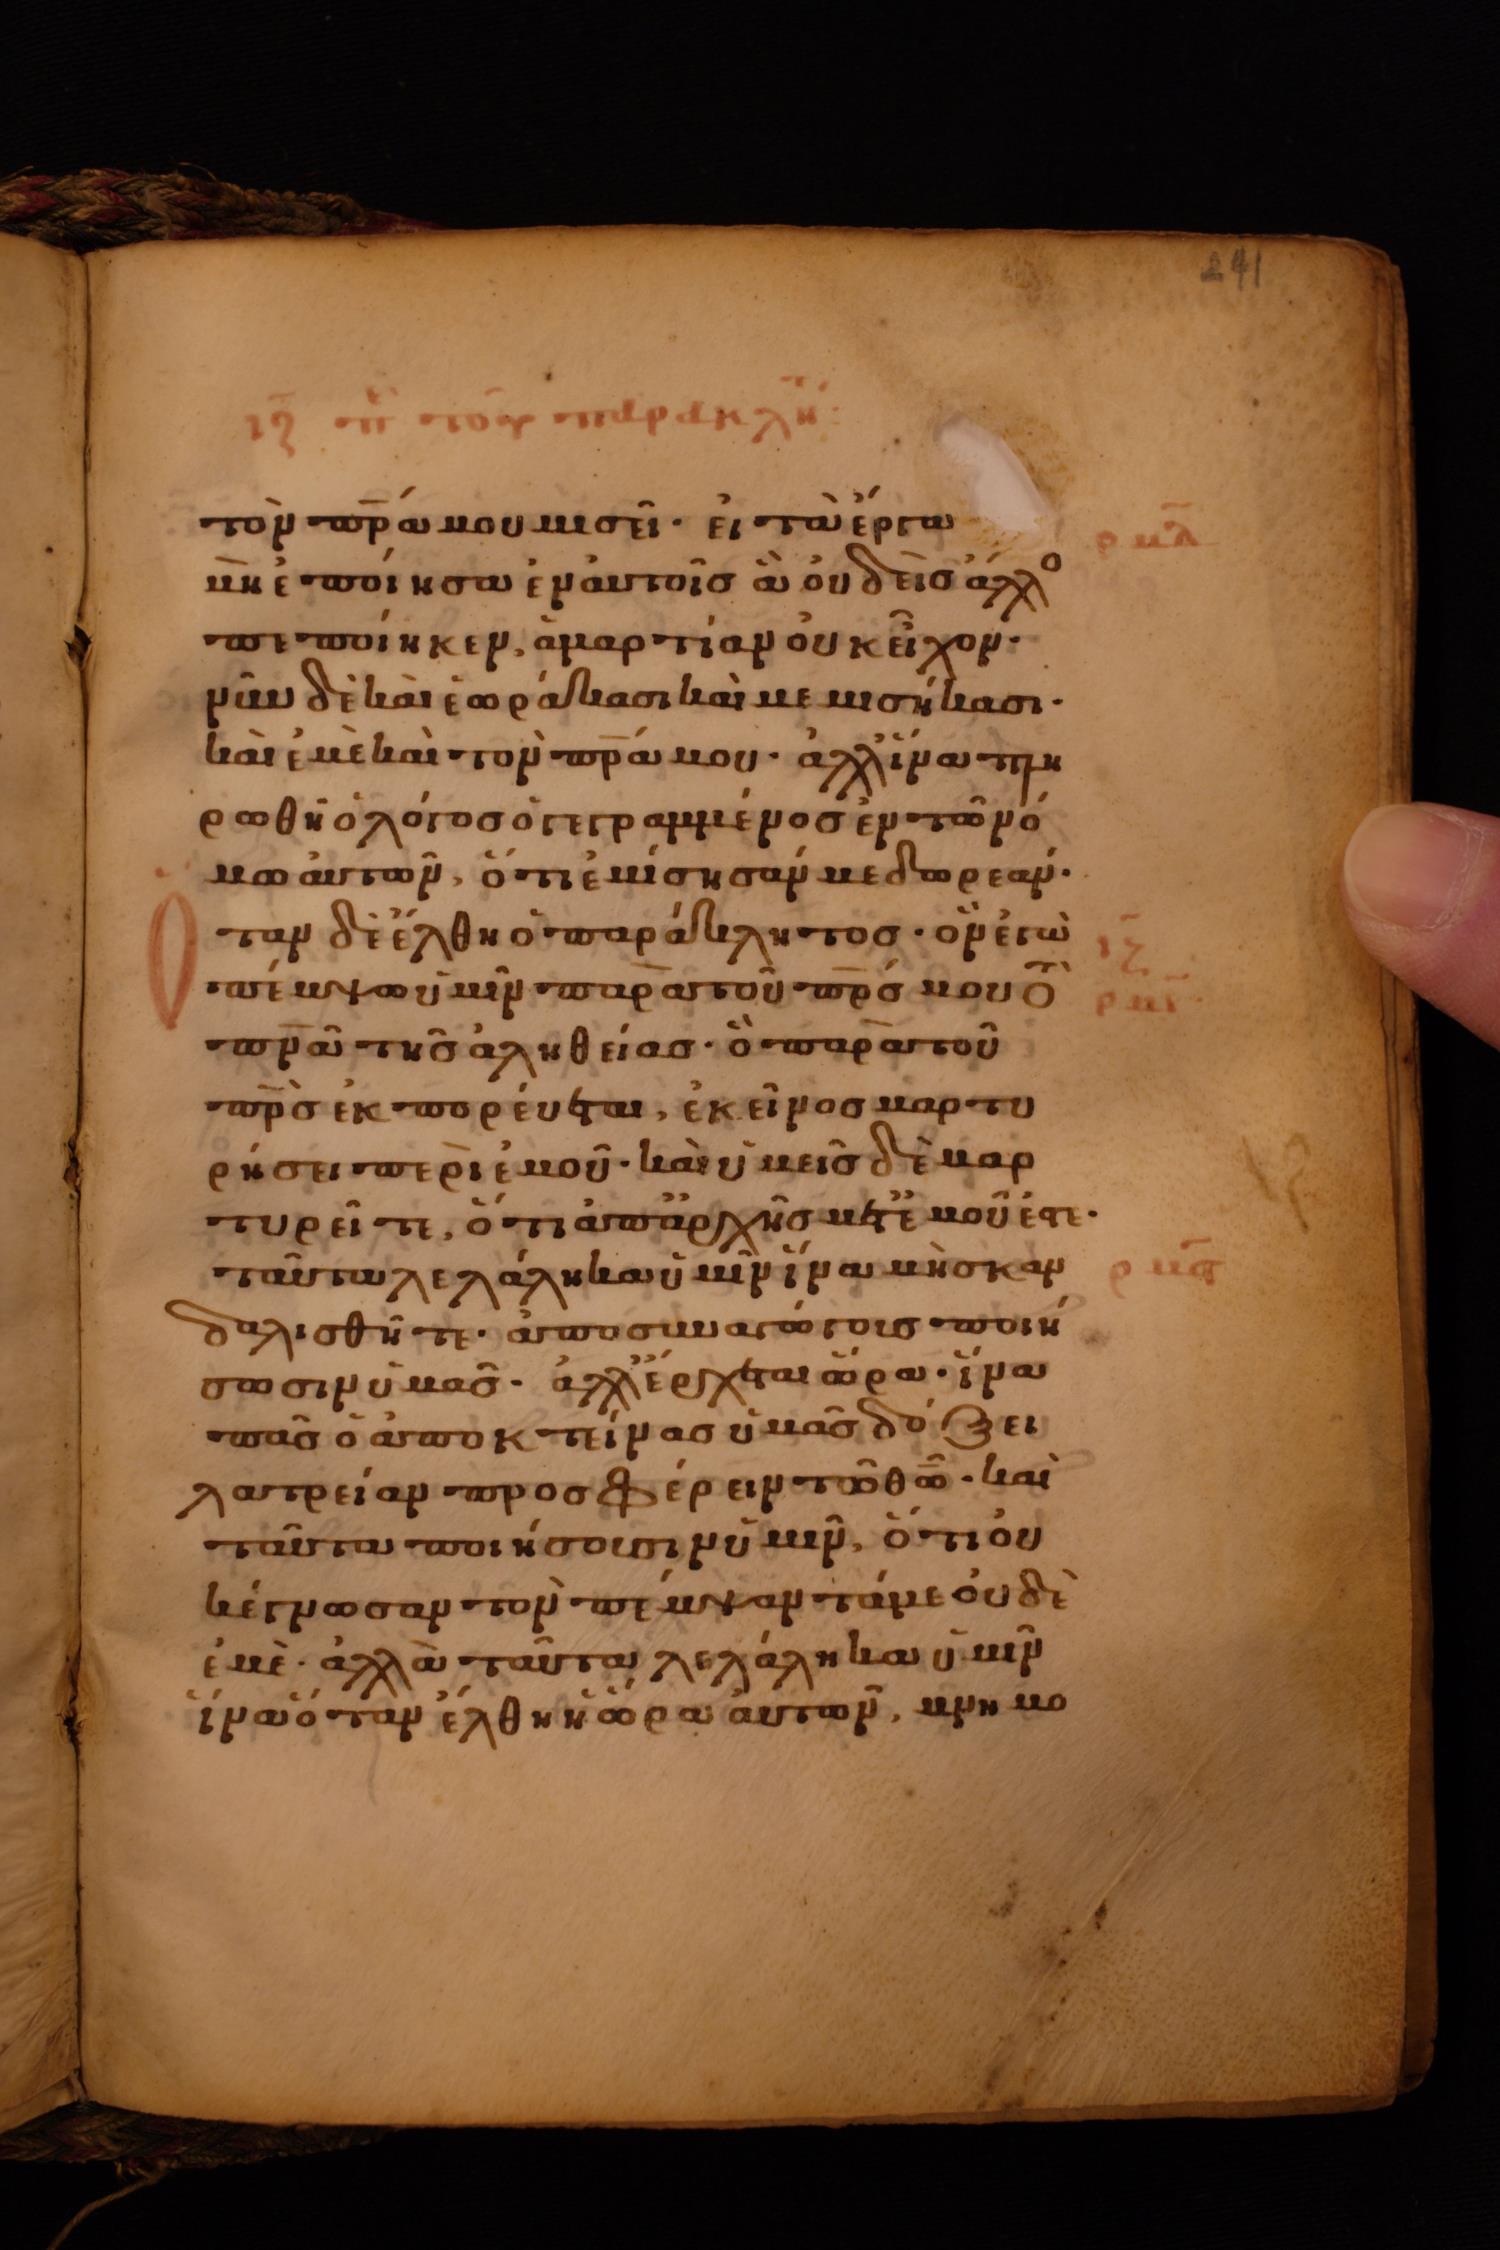 241
ιζ π τοῦ παρακλή:
τὸν πρ̅α μου μισεῖ· εἰ τὰ ἔργα
μὴ ἐποίησα ἐν αὐτοῖς ἃ οὐδεὶς ἄλλο
πεποίηκεν, ἁμαρτίαν οὐκ εἶχον·
νῦν δὲ καὶ ἑωράκασι καὶ μεμισήκασι·
καὶ ἐμὲ καὶ τὸν πρ̅α μου· ἀλλ' ἵνα πλη
ρωθῆ ὁ λόγος ὁ γεγραμμένος ἐν τῶ νό
μω αὐτῶν, ὅτι ἐμίσησάν με δωρεάν·
Ὅταν δὲ ἔλθη ὁ παράκλητος· ὃν ἐγὼ
πέμψω ὑμῖν παρὰ τοῦ πρ̅ς μου τὸ
πν̅α τῆς ἀληθείας· ὃ παρὰ τοῦ
πρ̅ς ἐκπορεύεται, ἐκεῖνος μαρτυ
ρήσει περὶ ἐμοῦ· καὶ ὑμεῖς δὲ μαρ
τυρεῖτε, ὅτι ἀπ' ἀρχῆς μετ' ἐμοῦ ἐστε·
ταῦτα λελάληκα ὑμῖν ἵνα μὴ σκαν
δαλισθῆτε· ἀποσυναγώγοις ποιή
σωσιν ὑμᾶς· ἀλλ' ἔρχεται ὥρα· ἵνα
πᾶς ὁ ἀποκτείνας ὑμᾶς δόξει
λατρείαν προσφέρειν τῶ θ̅ω· καὶ
ταῦτα ποιήσουσιν ὑμῖν, ὅτι οὐ
κ ἔγνωσαν τὸν πέμψαντά με οὐδὲ
ἐμὲ· ἀλλὰ ταῦτα λελάληκα ὑμῖν
ἵνα ὅταν ἔλθη ἡ ὥρα αὐτῶν, μνημο
ρμλ
ιζ
ρμγ
ρμδ